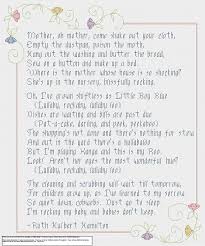 Mother, oh mother, come shake out your cloth,
Empty the dustpan, poison the moth,
Hang out the washing and butter the bread,
Sew on a button and make up a bed.
Where is the mother whose house is so shocking?
She's up in the nursery, blissfully rocking.
Oh, I've grown shiftless as Little Boy Blue
(Lullaby, rockaby, lullaby loo)
Dishes are waiting and bills are past due
(Pat-a-cake, darling, and peek, peekaboo)
The shopping's not done and there's nothing for stew
And out in the yard there's a hullabaloo
But I'm playing Kanga and this is my Roo.
Look! Aren't her eyes the most wonderful hue?
(Lullaby, rockaby, lullaby loo)
The cleaning and scrubbing will wait till tomorrow,
For children grow up, as I've learned to my sorrow
So quiet down, cobwebs. Dust go to sleep
I'm rocking my baby and babies don't keep.
~Ruth Hulbert Hamilton